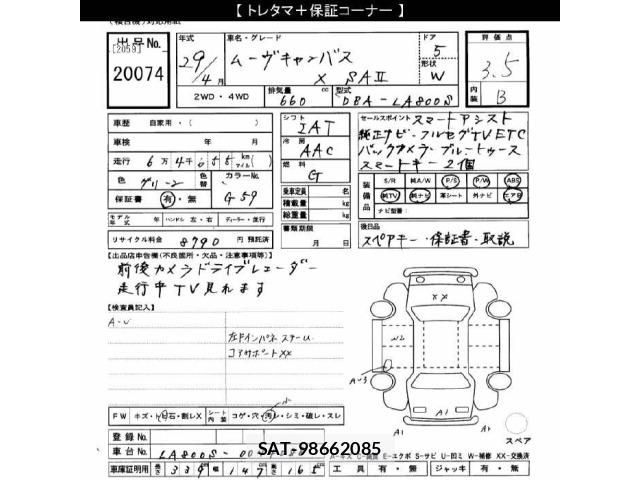 【 トレタマ＋保証コーナー 】
(検合機) 対応用紙
出品No. [2059] 20074
年式 29/4月
車名・グレード ムーヴキャンバス X SAⅡ
ドア 5
形状 W
評価点 3.5
内装 B
2WD・4WD
排気量 660 cc
型式 DBA-LA800S
車歴 自家用・( )
車検 年 月
走行 6万4千055 km マイル ( )
色 グリーン 色替 カラーNo. G59
保証書 有・無
モデル年式 年 ハンドル 左・右 ディーラー・並行
リサイクル料金 8790 円 預託済
シフト IAT
冷房 AAC
燃料 G
乗車定員 名
積載量 kg
総重量 kg
書類期限 月 日
セールスポイント スマートアシスト
純正ナビ・フルセグTV ETC
バックカメラ・ブルートゥース
スマートキー2個
装備品 S/R 純A/W P/S P/W ABS
純TV 純ナビ 革シート 外ナビ エアB
ナビ型番:
後日品
スペアキー・保証書・取説
【出品店申告欄(不良箇所・欠品・注意事項等)】
前後カメラドライブレコーダー
走行中TV見れます
【検査員記入】
A-U
左ドインパネステーU
コアサポートXX
XX
W2
A-3
A1
A1
スペア
FW キズ・ト・石・割レX シート内装 コゲ・穴・汚レ・シミ・破レ・スレ
小
登録No.
車台No. LA800S-00
SAT-98662085
車庫証明用 長さ 339 cm 幅 147 cm 高さ 165 cm 工具 有・無 ジャッキ 有・無
E-エクボ S-サビ U-凹ミ W-補修 XX-交換済